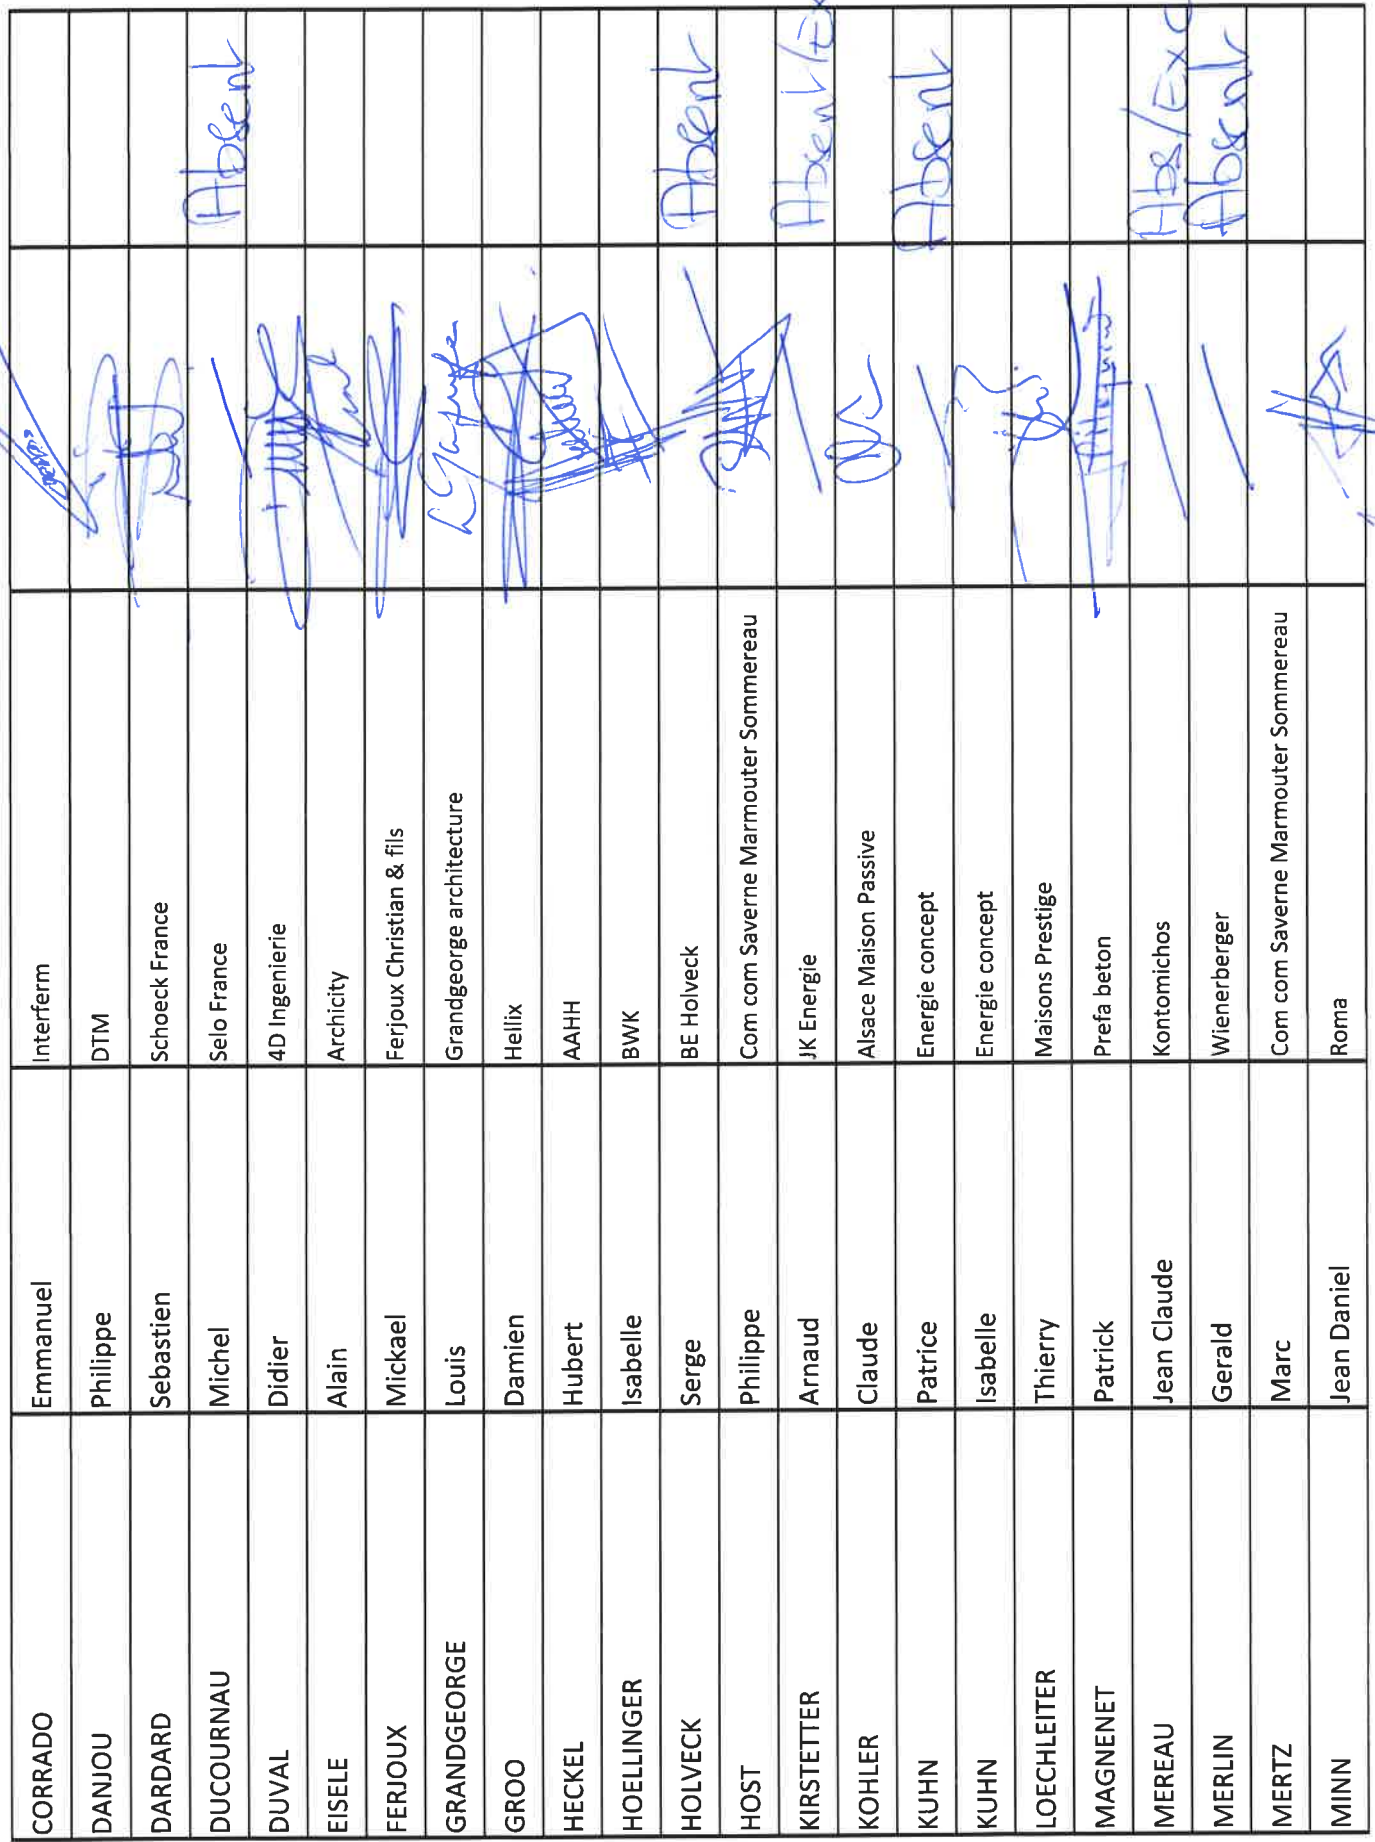 CORRADO Emmanuel Interferm
DANJOU Philippe DTM
DARDARD Sebastien Schoeck France
DUCOURNAU Michel Selo France Absent
DUVAL Didier 4D Ingenierie
EISELE Alain Archicity
FERJOUX Mickael Ferjoux Christian & fils
GRANDGEORGE Louis Grandgeorge architecture
GROO Damien Hellix
HECKEL Hubert AAHH
HOELLINGER Isabelle BWK
HOLVECK Serge BE Holveck Absent
HOST Philippe Com com Saverne Marmouter Sommereau
KIRSTETTER Arnaud JK Energie Absent/Ex
KOHLER Claude Alsace Maison Passive
KUHN Patrice Energie concept Absent
KUHN Isabelle Energie concept
LOECHLEITER Thierry Maisons Prestige
MAGNENET Patrick Prefa beton
MEREAU Jean Claude Kontomichos Abs/Exc
MERLIN Gerald Wienerberger Absent
MERTZ Marc Com com Saverne Marmouter Sommereau
MINN Jean Daniel Roma